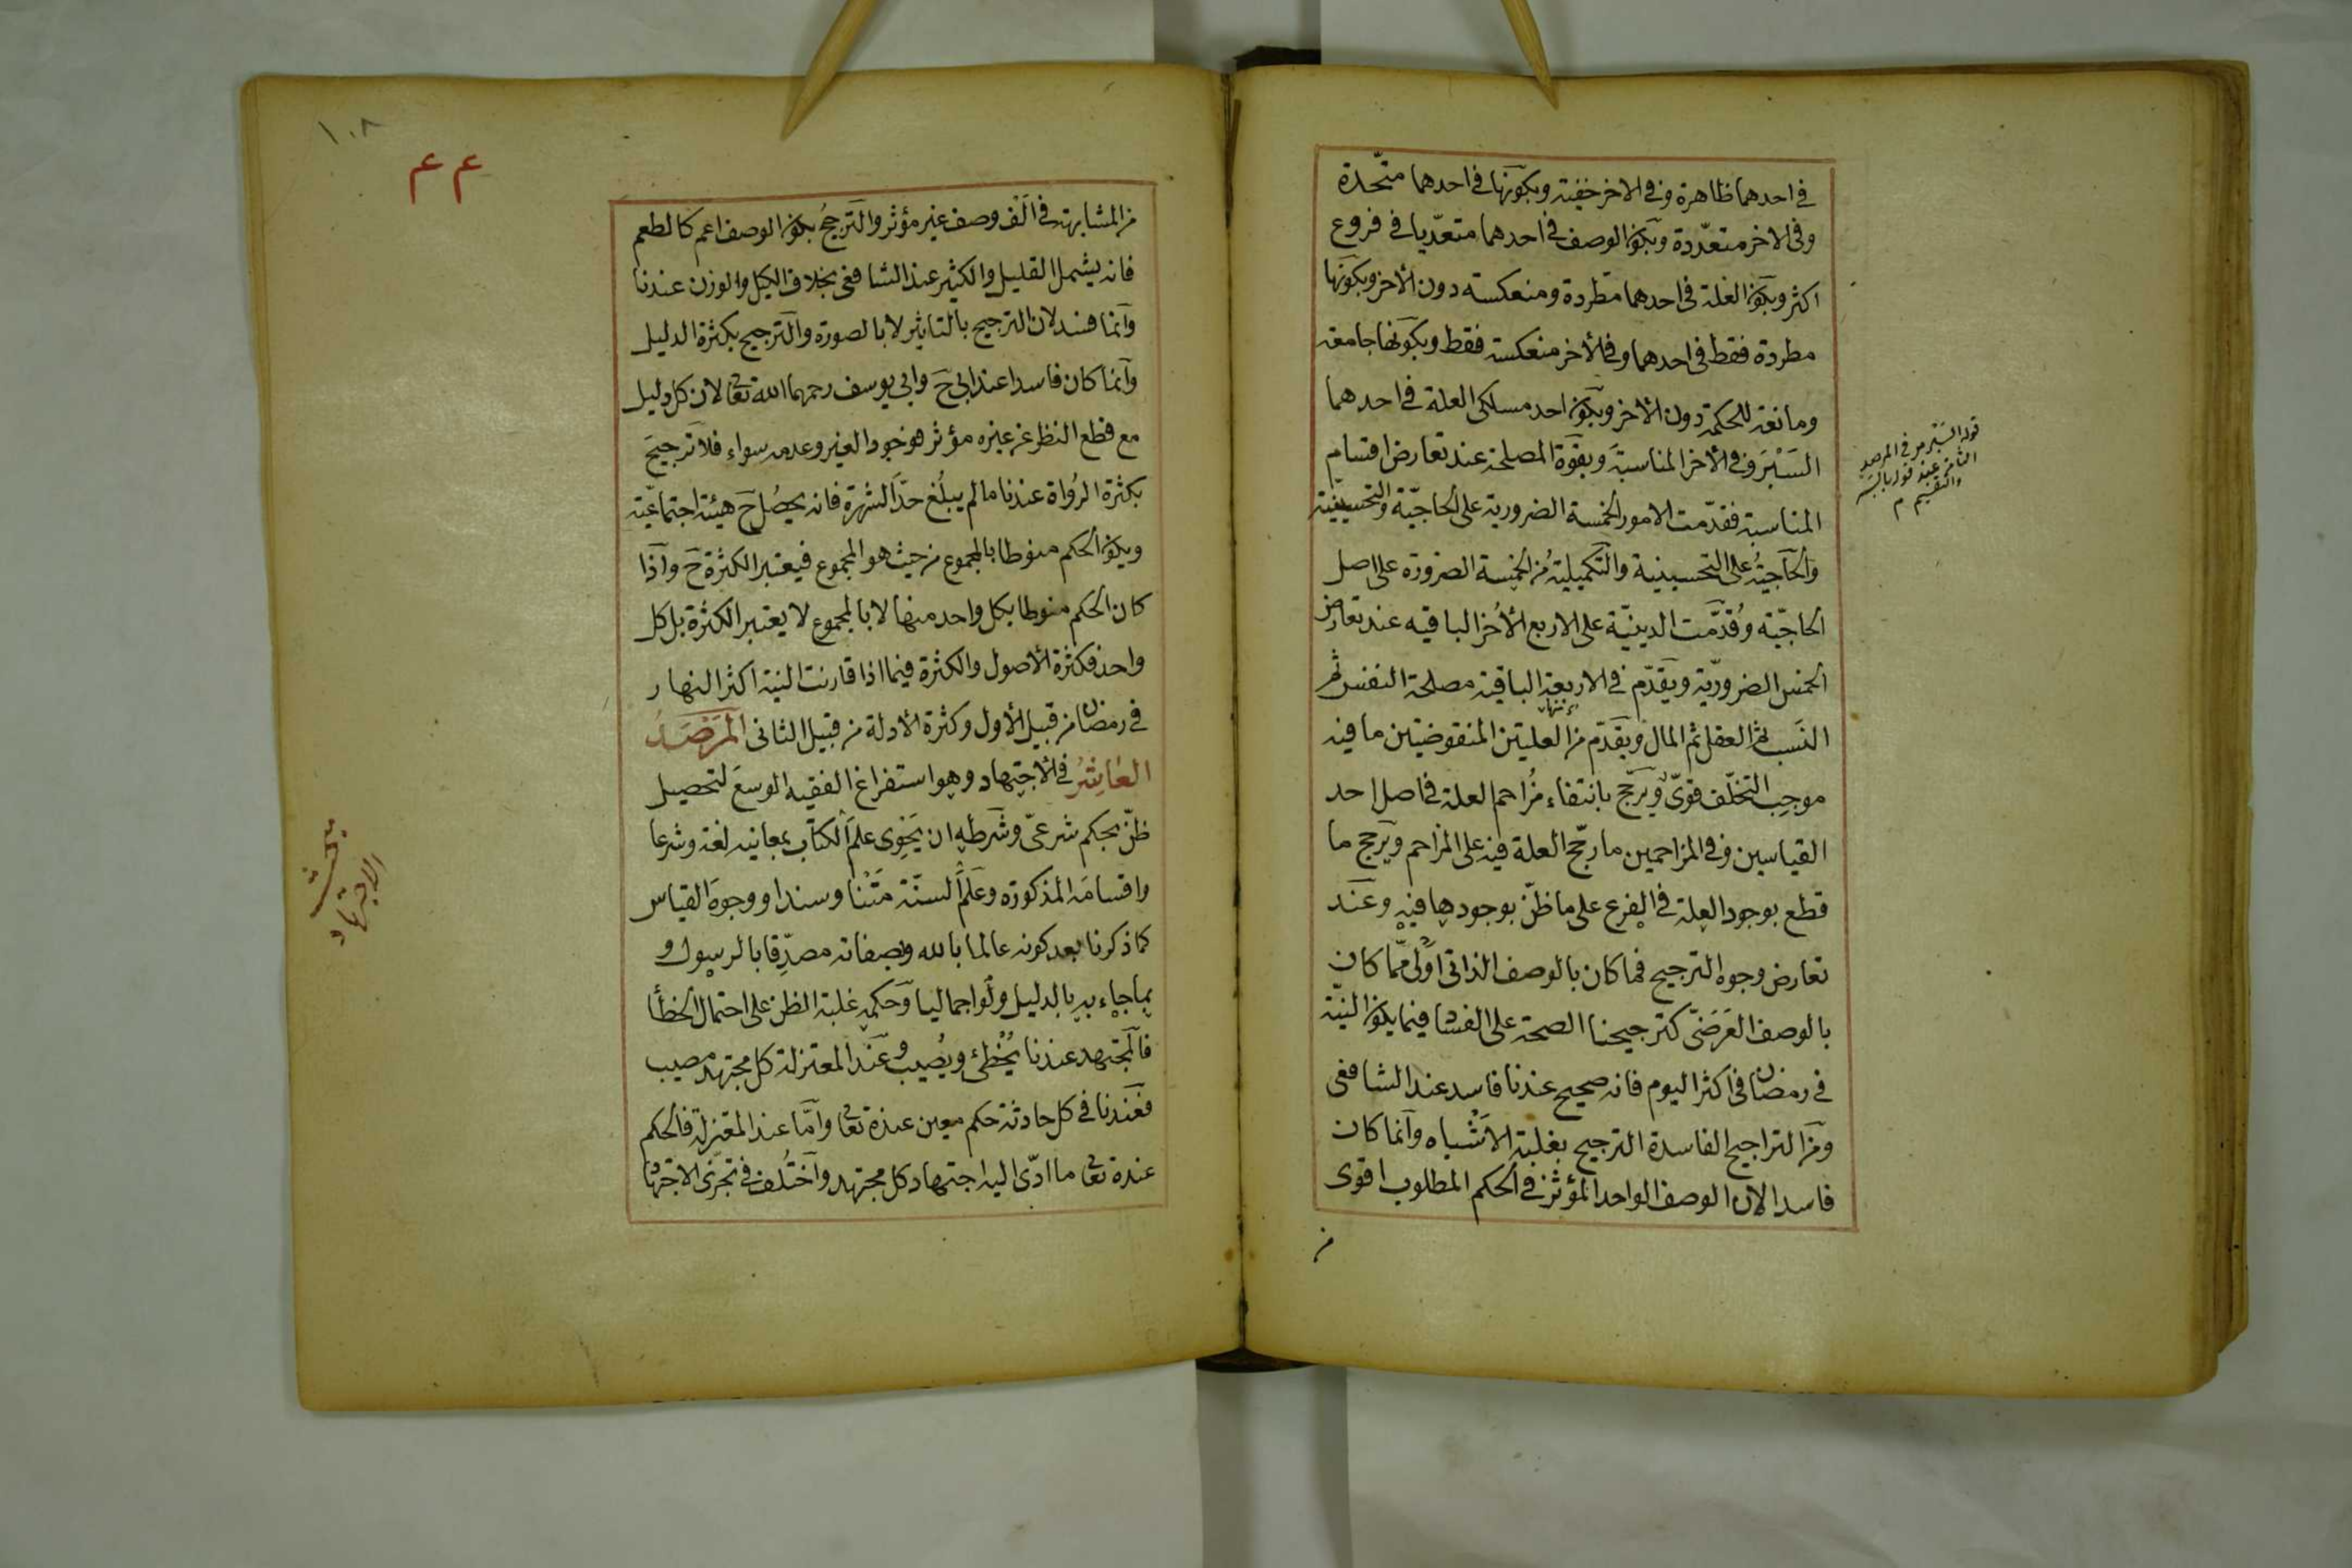 في احدهما ظاهرة وفي الاخر خفية وبكونها في احدهما متحدة
وفي الاخر متعددة وبكون الوصف في احدهما متعديا في فروع
اكثر وبكون العلة في احدهما مطردة ومنعكسته دون الأخر وبكونها
مطردة فقط في احدهما وفي الأخر منعكسته فقط وبكونها جامعة
ومانعة للحكمة دون الأخر وبكون احد مسلكى العلة في احدهما
السَبْرَ وفي الأخر المناسبة وبقوة المصلحة عند تعارض اقسام
المناسبة فقدمت الامور الخمسة الضرورية على الحاجية والتحسينية
والحاجية على التحسينية والتكميلية من الخمسة الضرورة على اصل
الحاجية وقُدّمت الدينية على الاربع الأُخر الباقيه عند تعارض
الخمس الضرورية ويقدم في الاربعة الباقية مصلحة النفس ثم
النسب ثم العقل ثم المال ويقدم من العليتن المنقوضتين ما فيه
موجب التخلف قوىّ ويرجح بانتفاء مُزاحم العلة في اصل احد
القياسين وفي المزاحمين ما رجّح العلة فيه على المزاحم ويرجح ما
قطع بوجود العلة في الفرع على ما ظنّ بوجودها فيه وعند
تعارض وجوه الترجيح فما كان بالوصف الذاتى اولى ممّا كان
بالوصف العَرَضىّ كترجيحنا الصحة على الفساد فيما يكون النيّة
في رمضان في اكثر اليوم فانه صحيح عندنا فاسد عند الشافعى
ومن التراجيح الفاسدة الترجيح بغلبة الاَشْباه وانما كان
فاسدا لان الوصف الواحد المؤثر في الحكم المطلوب اقوى
من
قوله السبر مر في المرصد
الثامن عند قوله بالسبر
والتقسيم م
١٠٨
ع ع
من المشابهة في الف وصف غير مؤثر والترجيحُ بكون الوصف اعم كالطعم
فانه يشمل القليل والكثير عند الشافعى بخلاف الكيل والوزن عندنا
وانما فسد لان الترجيح بالتاثير لا بالصورة والترجيح بكثرة الدليل
وانما كان فاسدا عند ابى ح وابى يوسف رحمهما الله تعا لان كل دليل
مع قطع النظر عن غيره مؤثر فوجود الغير وعدمه سواء فلا ترجيح
بكثرة الرُواة عندنا مالم يبلُغ حدّ الشهرة فانه يحصُل ح هيئة اجتماعيّة
ويكون الحكم منوطا بالمجموع من حيث هو المجموع فيعتبر الكثرة ح واذا
كان الحكم منوطا بكل واحد منها لا بالمجموع لا يعتبر الكثرة بل كل
واحد فكثرة الأصول والكثرة فيما اذا قارنت النية اكثر النهار
في رمضان من قبيل الأول وكثرة الأدلة من قبيل الثانى المَرْصَدُ
العاشرُ في الاجتهاد وهو استفراغ الفقيه الوسع لتحصيل
ظنّ بحكم شرعىّ وشرطه ان يَحْوِى علمَ الكتاب بمعانيه لغة وشرعا
واقسامَه المذكورة وعلمَ السنّة مَتْنا وسندا ووجوهَ القياس
كما ذكرنا بعد كونه عالما بالله وبصفاته مصدّقا بالرسول و
بما جاء به بالدليل ولو اجماليا وحكمه غلبة الظن على احتمال الخطأ
فالمجتهد عندنا يُخْطِئ ويُصيب وعند المعتزلة كل مجتهد مصيب
فعندنا في كل حادثة حكم معين عنده تعا وامّا عند المعتزلة فالحكم
عنده تعا ما ادّى اليه اجتهاد كل مجتهد واختُلف في تجزى الاجتهاد
بحث
الاجتهاد